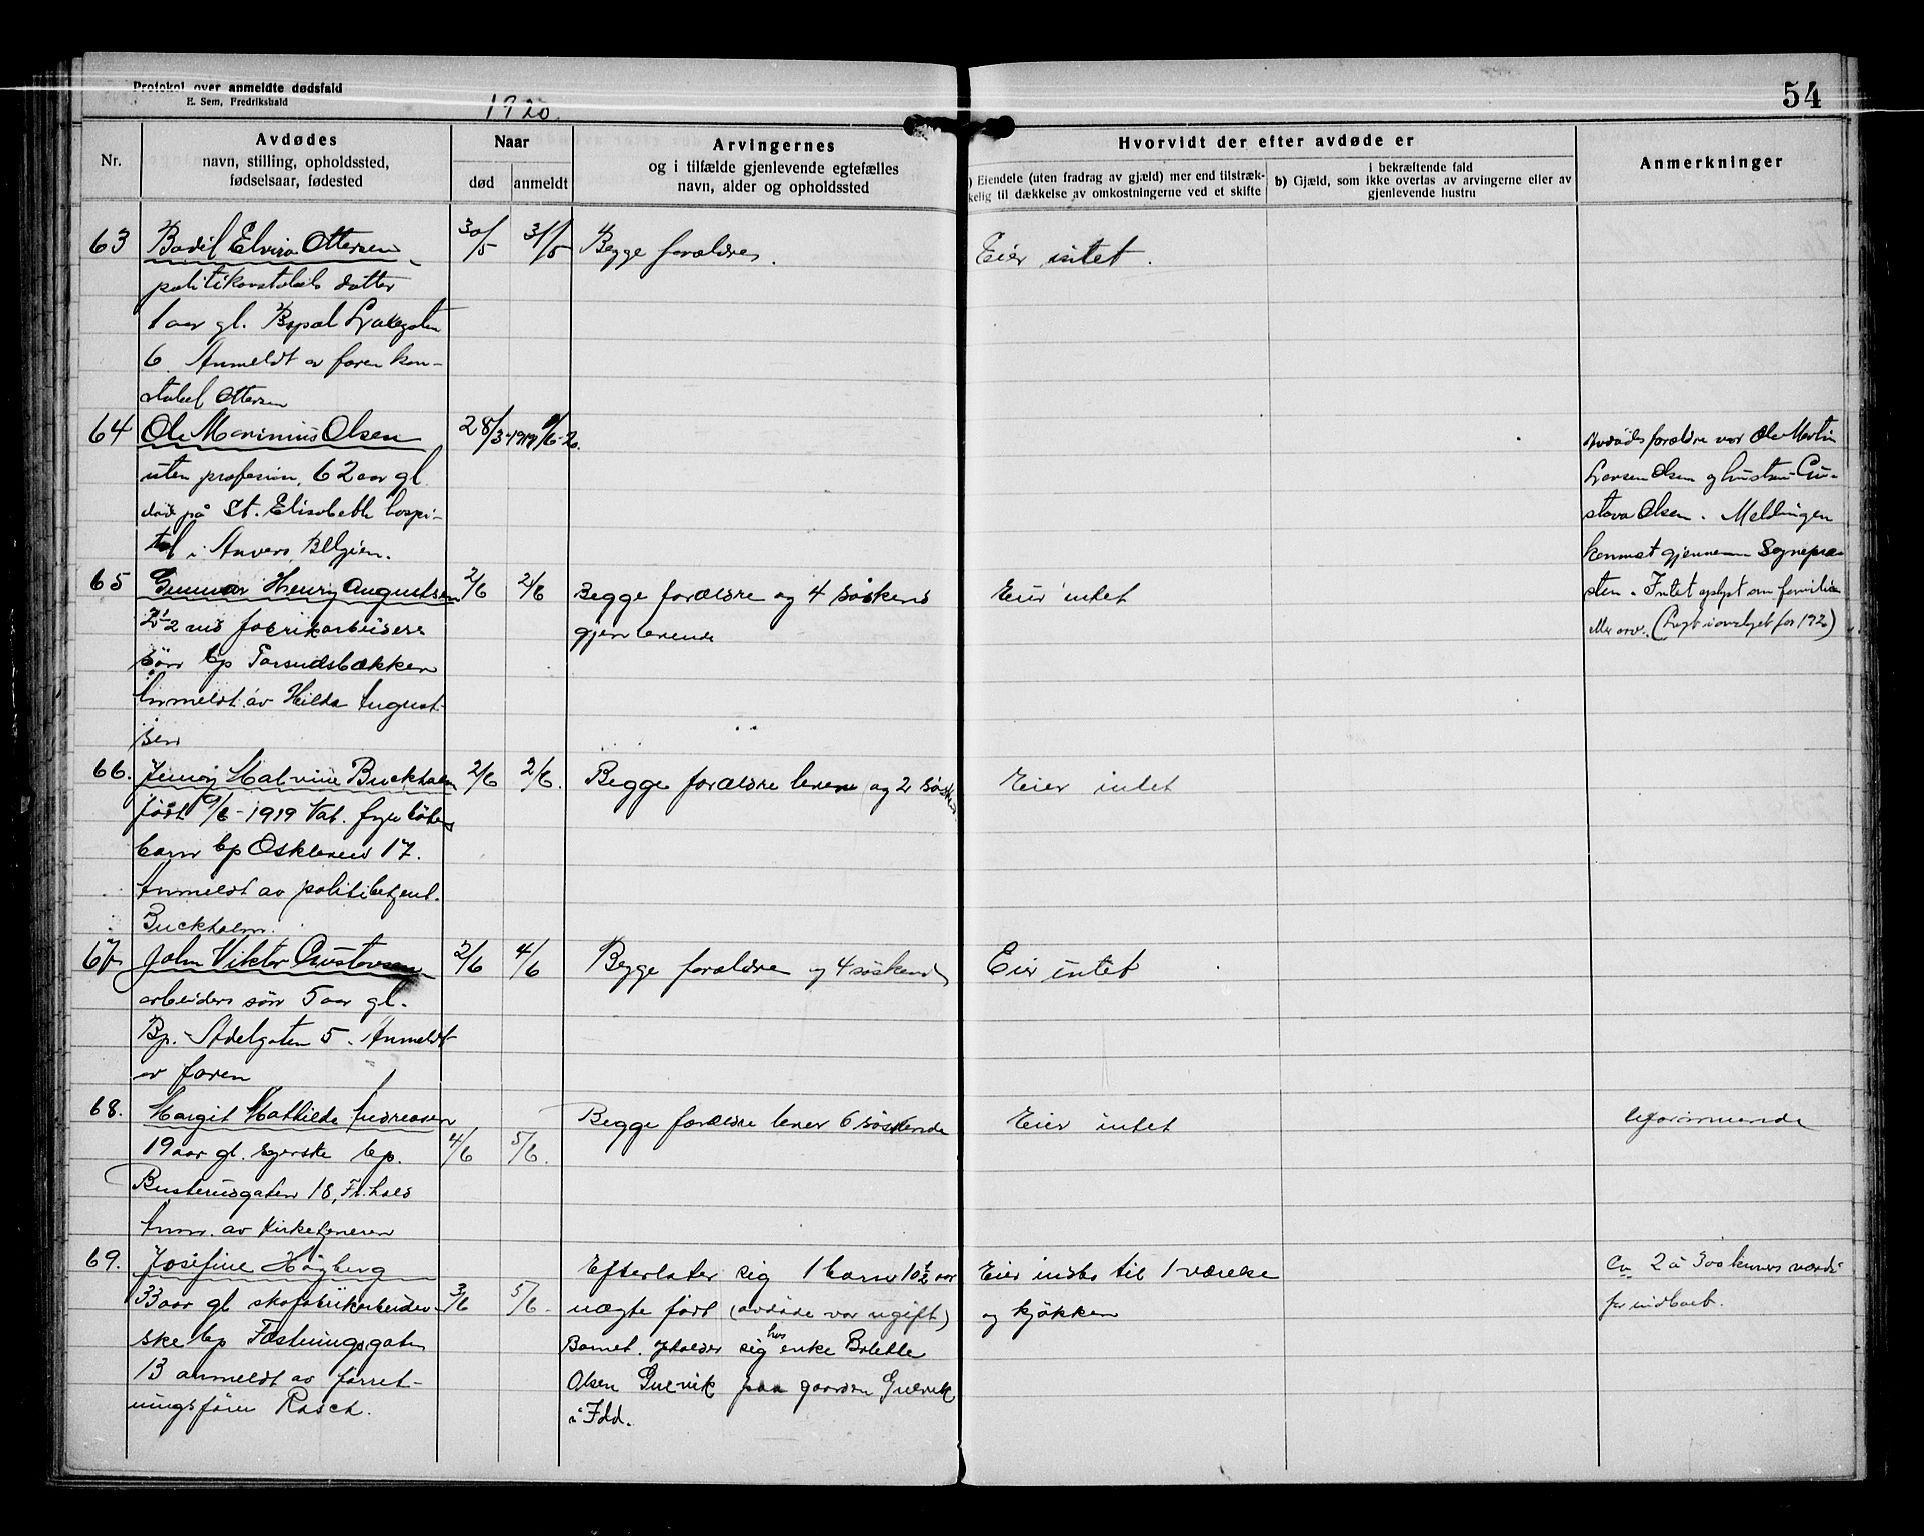 Protokol over anmeldte dødsfald
E. Sem, Fredrikshald
1920.
54
Nr.
Avdødes
navn, stilling, opholdssted,
fødselsaar, fødested
Naar
død
anmeldt
Arvingernes
og i tilfælde gjenlevende egtefælles
navn, alder og opholdssted
Hvorvidt der efter avdøde er
) Eiendele (uten fradrag av gjæld) mer end tilstræk-
kelig til dækkelse av omkostningerne ved et skifte
i bekræftende fald
b) Gjæld, som ikke overtas av arvingerne eller av
gjenlevende hustru
Anmerkninger
63 Bodil Elvira Ottersen 30/5 31/5 Begge forældre. Eier intet.
politikonstabels datter
1 aar gl. Bopæl
6. Anmeldt av faren kon-
stabel Ottersen
64 Ole Marinius Olsen 28/3-1919 /6-20.
uten profesion, 62 aar gl
død på St. Elisabeth hospi-
tal i Anvers Belgien.
Avdødes forældre var Ole Martin
Larsen Olsen og hustru Gu-
stava Olsen. Meldingen
kommet gjennem Sognepre-
sten. Intet oplyst om familien
eller arv.
65 Gunnar Henry Augustsen 2/6 2/6 Begge forældre og 4 søskend Eier intet
fabrikarbeiders gjenlevende
søn bp Torsudsbækken
Anmeldt av Hilda August-
sen
66. Jenny Malvine Buckholm 2/6 2/6. Begge forældre lever og 2 søskend Eier intet
født 9/6-1919
barn bp Oskleiven 17.
Anmeldt av politibetjent.
Buckholm.
67 John Viktor Gustavsen 2/6 4/6 Begge forældre og 4 søskend Eier intet
arbeiders søn 5 aar gl.
Bp. Adelgaten 5. Anmeldt
av faren
68. Margit Mathilde Andreasen Begge forældre lever 6 søskende Eier intet Uformuende
19 aar gl. syerske bp. 4/6 5/6.
Busterudgaten 18, Fr.hald
Anm. av kirketjeneren
69. Josefine Høgberg Efterlater sig 1 barn 10½ aar Eier indbo til 1 værelse Ca 2 à 300 kroners værdi
33 aar gl skofabrikarbeider- 3/6 5/6. uægte født (avdøde var ugift) og kjøkken for indboet.
ske bp Fæstningsgaten Barnet opholder sig hos enke Bolette
13 anmeldt av forret- Olsen Gulvik paa gaarden Gulvik
ningsfører Rasch. i Idd.